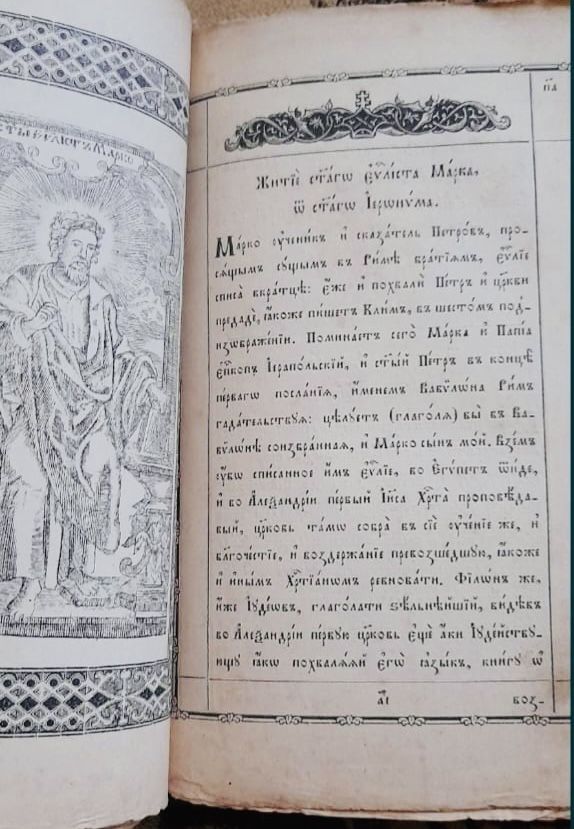 Марко
п҃а
Житїѐ ст҃а́гѡ є҆ѵⷢ҇лі́ста Ма́рка,
ѿ ст҃а́гѡ І҆ерѡнѵ́ма.
Ма́рко ᲂу҆чени́къ и҆ сказа́тель Петро́въ, про-
сѧ́щымъ сꙋ́щымъ въ Ри́мѣ бра́тїѧмъ, є҆ѵⷢ҇лїе
списа̀ вкра́тцѣ: є҆́же и҆ похвалѝ Пе́тръ и҆ цр҃кви
предадѐ, ꙗ҆́коже пи́шетъ Кли́мъ, въ шесто́мъ под̾-
изѡбраже́нїи. Помина́етъ сего̀ Ма́рка и҆ Папі́а
є҆пⷭ҇копъ І҆ерапо́льскїй, и҆ ст҃ы́й Пе́тръ въ концѣ̀
пе́рвагѡ посла́нїѧ, и҆́менемъ Вавѷлѡ́на Ри́мъ
гада́тельствꙋѧ: цѣлꙋ́етъ (глаго́лѧ) вы̀ въ Ва-
вѷлѡ́нѣ соизбра́ннаѧ, и҆ Ма́рко сы́нъ мо́й. Взе́мъ
ᲂу҆́бѡ спи́санное и҆́мъ є҆ѵⷢ҇лїе, во Є҆гѵ́петъ ѿи́де,
и҆ во А҆леѯандрі́и пе́рвый І҆и҃са Хрⷭ҇та̀ проповѣ́да-
вый, цр҃ковь та́мѡ собра̀ въ сїѐ ᲂу҆че́нїе же, и҆
бл҃гоче́стїе, и҆ воздержа́нїе превозше́дшꙋю, ꙗ҆́коже
и҆ и҆ны̑мъ Хрⷭ҇тїа́нѡмъ ревнова́ти. Фі́лѡнъ же,
и҆́же І҆ꙋде́ѡвъ, глаго́лати ѕѣльнѣ́йшїй, ви́дѣвъ
во А҆леѯандрі́и пе́рвꙋю цр҃ковь є҆щѐ а҆́ки І҆ꙋде́йствꙋ-
ющꙋ ꙗ҆́кѡ похвалѧ́ѧй є҆гѡ̀ ꙗ҆зы́къ, кни́гꙋ ѿ
а҃і
воз-